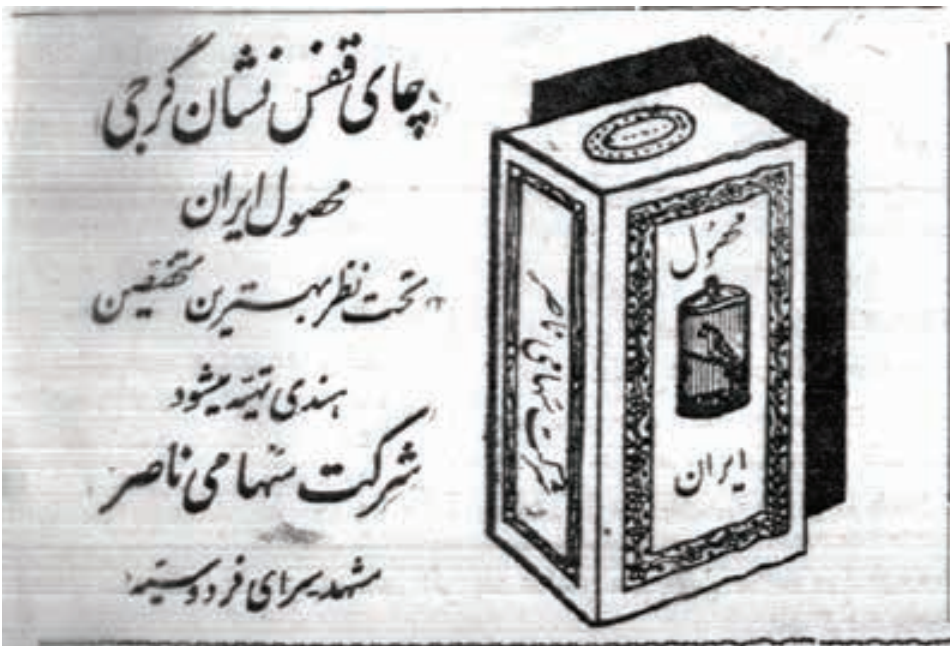 چای قفس نشان گرجی
محصول ایران
تحت نظر بهترین متخصصین
هندی تهیه میشود
شرکت سهامی ناصر
مشهد سرای فردوسیه
محصول
ایران
شرکت سهامی ناصر